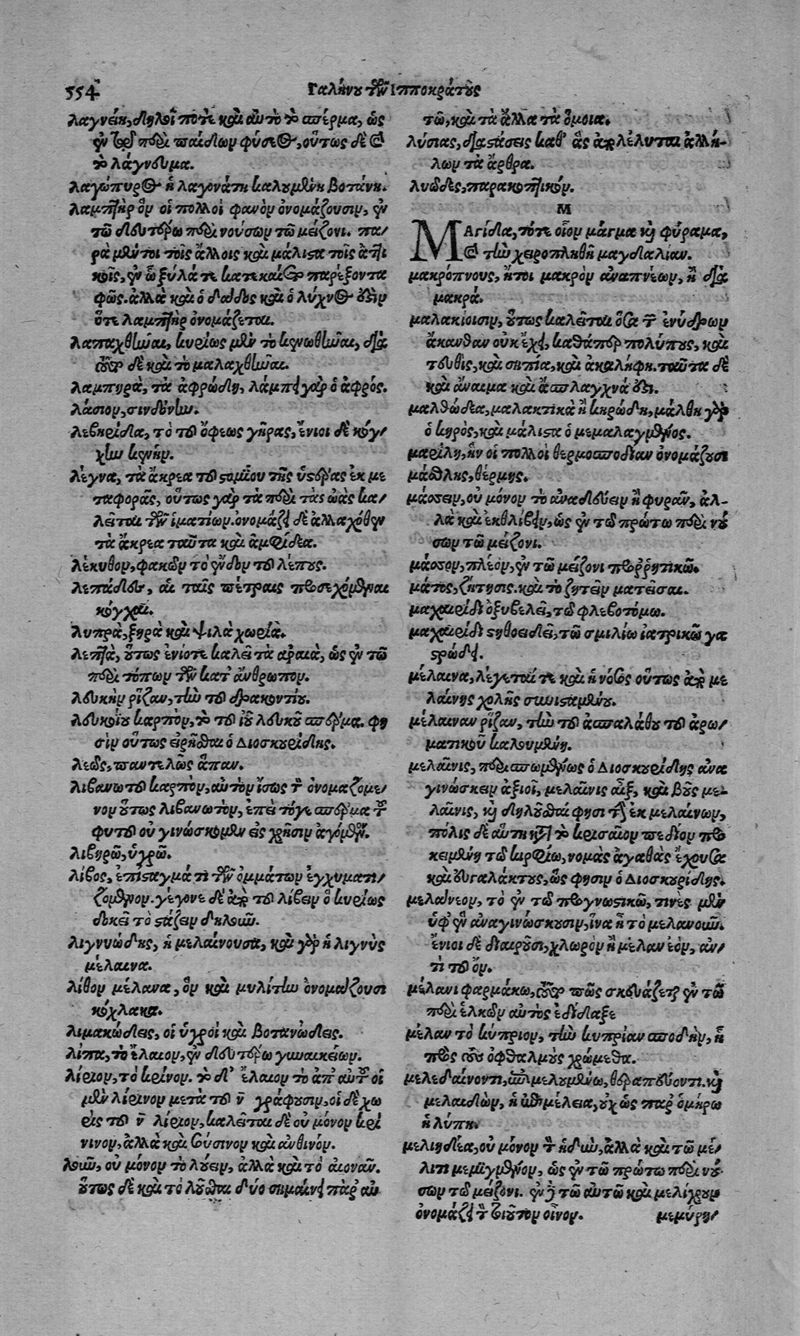 554 Γαλήνου τῶν Ἱπποκράτους
λαγνείη, δηλοῖ ποτὲ καὶ αὐτὸ τὸ σπέρμα, ὡς
ἐν τῷ περὶ παιδίων φύσιος, οὕτως δὲ καὶ
τὸ λάγνευμα.
λαγώπυρος ἡ λαγονάτη καλουμένη βοτάνη.
λαμπτὴρ ὃν οἱ πολλοὶ φανὸν ὀνομάζουσιν, ἐν
τῷ δευτέρῳ περὶ νούσων τῷ μείζονι. πα/
ρὰ μέντοι τοῖς ἄλλοις καὶ μάλιστα τοῖς ἀττι
κοῖς, ἐν ᾧ ξύλά τε κατεκαίετο παρέξοντα
φῶς. ἀλλὰ καὶ ὁ δαλὸς καὶ ὁ λύχνος ἔστιν
ὅτε λαμπτὴρ ὀνομάζεται.
λαπαχθῆναι, κυρίως μὲν τὸ κενωθῆναι, διὰ
τοῦτο δὲ καὶ τὸ μαλαχθῆναι.
λαμπυρὰ, τὰ ἀφρώδη, λάμπη γὰρ ὁ ἀφρός.
λάσιον, σινδόνιον.
λεβηρίδα, τὸ τοῦ ὄφεως γῆρας, ἔνιοι δὲ κόγ/
χην κενήν.
λέγνα, τὰ ἄκρεα τοῦ στομίου τῆς ὑστέρας ἐκ με
ταφορᾶς, οὕτως γὰρ τὰ περὶ τὰς ὤας κα/
λεῖται τῶν ἱματίων. ὀνομάζει δὲ ἀλλαχόθεν
τὰ ἄκρεα ταῦτα καὶ ἀμφίδεα.
λέκυθον, φακῶν τὸ ἔνδον τοῦ λέπους.
λεπάδες, αἱ ταῖς πέτραις προσεχόμεναι
κόγχαι.
λυπρὰ, ξηρὰ καὶ ψιλὰ χωρία.
λεπτὰ, οὕτως ἐνίοτε καλεῖ τὰ ἀραιὰ, ὡς ἐν τῷ
περὶ τόπων τῶν κατ' ἄνθρωπον.
λευκὴν ῥίζαν, τὴν τοῦ δρακοντίου.
λευκοΐου καρπὸν, τὸ τοῦ ἴου λευκοῦ σπέρμα. φη
σὶν οὕτως εἰρῆσθαι ὁ Διοσκουρίδης.
λεῶς, παντελῶς ἅπαν.
λιβανωτοῦ καρπὸν, αὐτὸν ἴσως τὸν ὀνομαζόμε/
νον οὕτως λιβανωτὸν, ἐπεὶ τόγε σπέρμα τοῦ
φυτοῦ οὐ γινώσκομεν εἰς χρῆσιν ἀγόμενον.
λιβηρῷ, ὑγρῷ.
λίβος, ἐπίσταγμά τι τῶν ὀμμάτων ἐγχυματι/
ζόμενον. γέγονε δὲ ἀπὸ τοῦ λίβειν ὃ κυρίως
δοκεῖ τὸ στάζειν δηλοῦν.
λιγνυώδης, ἡ μελαίνουσα, καὶ γὰρ ἡ λιγνὺς
μέλαινα.
λίθον μέλανα, ὃν καὶ μυλίτην ὀνομάζουσι
κόχλακα.
λιμακώδεες, οἱ ὑγροὶ καὶ βοτανώδεες.
λίπα, τὸ ἔλαιον, ἐν δευτέρῳ γυναικείων.
λίριον, τὸ κρίνον. τὸ δ' ἔλαιον τὸ ἀπ' αὐτοῦ οἱ
μὲν λίρινον μετὰ τοῦ ν γράφουσιν, οἱ δὲ χω
ρὶς τοῦ ν λίριον, καλεῖται δὲ οὐ μόνον κρί
νινον, ἀλλὰ καὶ σούσινον καὶ ἀνθινόν.
λοῦν, οὐ μόνον τὸ λούειν, ἀλλὰ καὶ τὸ αἰονᾶν.
οὕτως δὲ καὶ τὸ λοῦσθαι δύο σημαίνει παρ' αὐ
τῷ, καὶ τὰ ἄλλα τὰ ὅμοια.
λύσιας, διαστάσεις καθ' ἃς ἀπολέλυται ἀλλή-
λων τὰ ἄρθρα.
λυώδες, παρακοπτικόν.
Μ
ΜΑγίδα, τότε οἷον μάγμα καὶ φύραμα,
καὶ τὴν χειροπληθῆ μαγδαλίαν.
μακρόπνους, ἤτοι μακρὸν ἀναπνέων, ἢ διὰ
μακρά.
μαλακίοισιν, οὕτως καλεῖται ὅσα τῶν ἐνύδρων
ἄκανθαν οὐκ ἔχει, καθάπερ πολύπους, καὶ
τευθὶς, καὶ σηπία, καὶ ἀκαλήφη. ταῦτα δὲ
καὶ ἄναιμα καὶ ἄσπλαγχνά ἐστι.
μαλθώδεα, μαλακτικὰ ἢ κηρώδη, μάλθη γὰρ
ὁ κηρὸς, καὶ μάλιστα ὁ μεμαλαγμένος.
μαρίλη, ἣν οἱ πολλοὶ θερμοσποδίαν ὀνομάζουσι
μάθλης, θέρμης.
μάσσειν, οὐ μόνον τὸ ἀναδεύειν ἢ φυρᾶν, ἀλ-
λὰ καὶ ἐκθλίβειν, ὡς ἐν τῷ πρώτῳ περὶ νού
σων τῷ μείζονι.
μάσσον, πλέον, ἐν τῷ μείζονι προῤῥητικῷ.
μάτος, ζήτησις. καὶ τὸ ζητεῖν ματεῖσαι.
μαχαιρίδι ὀξυβελεῖ, τῷ φλεβοτόμῳ.
μαχαιρίδι στηθοειδεῖ, τῷ σμιλίῳ ἰατρικῷ γα
στρώδει.
μέλαινα, λέγεταί τε καὶ ἡ νόσος οὕτως ἀπὸ με
λαίνης χολῆς συνισταμένη.
μέλαιναν ῥίζαν, τὴν τοῦ ἀσπαλάθου τοῦ ἀρω/
ματικοῦ καλουμένην.
μελαινὶς, περισπωμένως ὁ Διοσκουρίδης ἀνα
γινώσκειν ἀξιοῖ, μελαῖνις αἲξ, καὶ βοῦς με-
λαῖνις, καὶ δηλοῦσθαί φησι τὴν ἐκ μελαινῶν,
πόλις δὲ αὕτη κατὰ τὸ κρισαῖον πεδίον προ
κειμένη τῷ κιρφίῳ, νομὰς ἀγαθὰς ἔχουσα
καὶ εὐγαλάκτους, ὥς φησιν ὁ Διοσκουρίδης.
μελανέον, τὸ ἐν τῷ προγνωστικῷ, τινὲς μὲν
ὑφ' ἓν ἀναγινώσκουσιν, ἵνα ᾖ τὸ μελανοῦν.
ἔνιοι δὲ διαιροῦσι, χλωρὸν ἢ μέλαν ἐὸν, ἀν/
τὶ τοῦ ὄν.
μέλανι φαρμάκῳ, τοῦτο πῶς σκευάζεται ἐν τῷ
περὶ ἑλκῶν αὐτὸς ἐδίδαξε
μέλαν τὸ κύπριον, τὴν κυπρίαν σποδὴν, ᾗ
πρὸς τοὺς ὀφθαλμοὺς χρώμεθα.
μελεδαίνοντι, ἐπιμελουμένῳ, θεραπεύοντι. καὶ
μελεδὼν, ἡ ἐπιμέλεια, οὐχ ὡς παρ' ὁμήρῳ
ἡ λύπη.
μελιηδέα, οὐ μόνον τὸν ἡδὺν, ἀλλὰ καὶ τῷ μέ/
λιτι μεμιγμένον, ὡς ἐν τῷ πρώτῳ περὶ νού-
σων τῷ μείζονι. ἐν δὲ τῷ αὐτῷ καὶ μελίχρουν
ὀνομάζει τὸν τοιοῦτον οἶνον. μεμύρη/